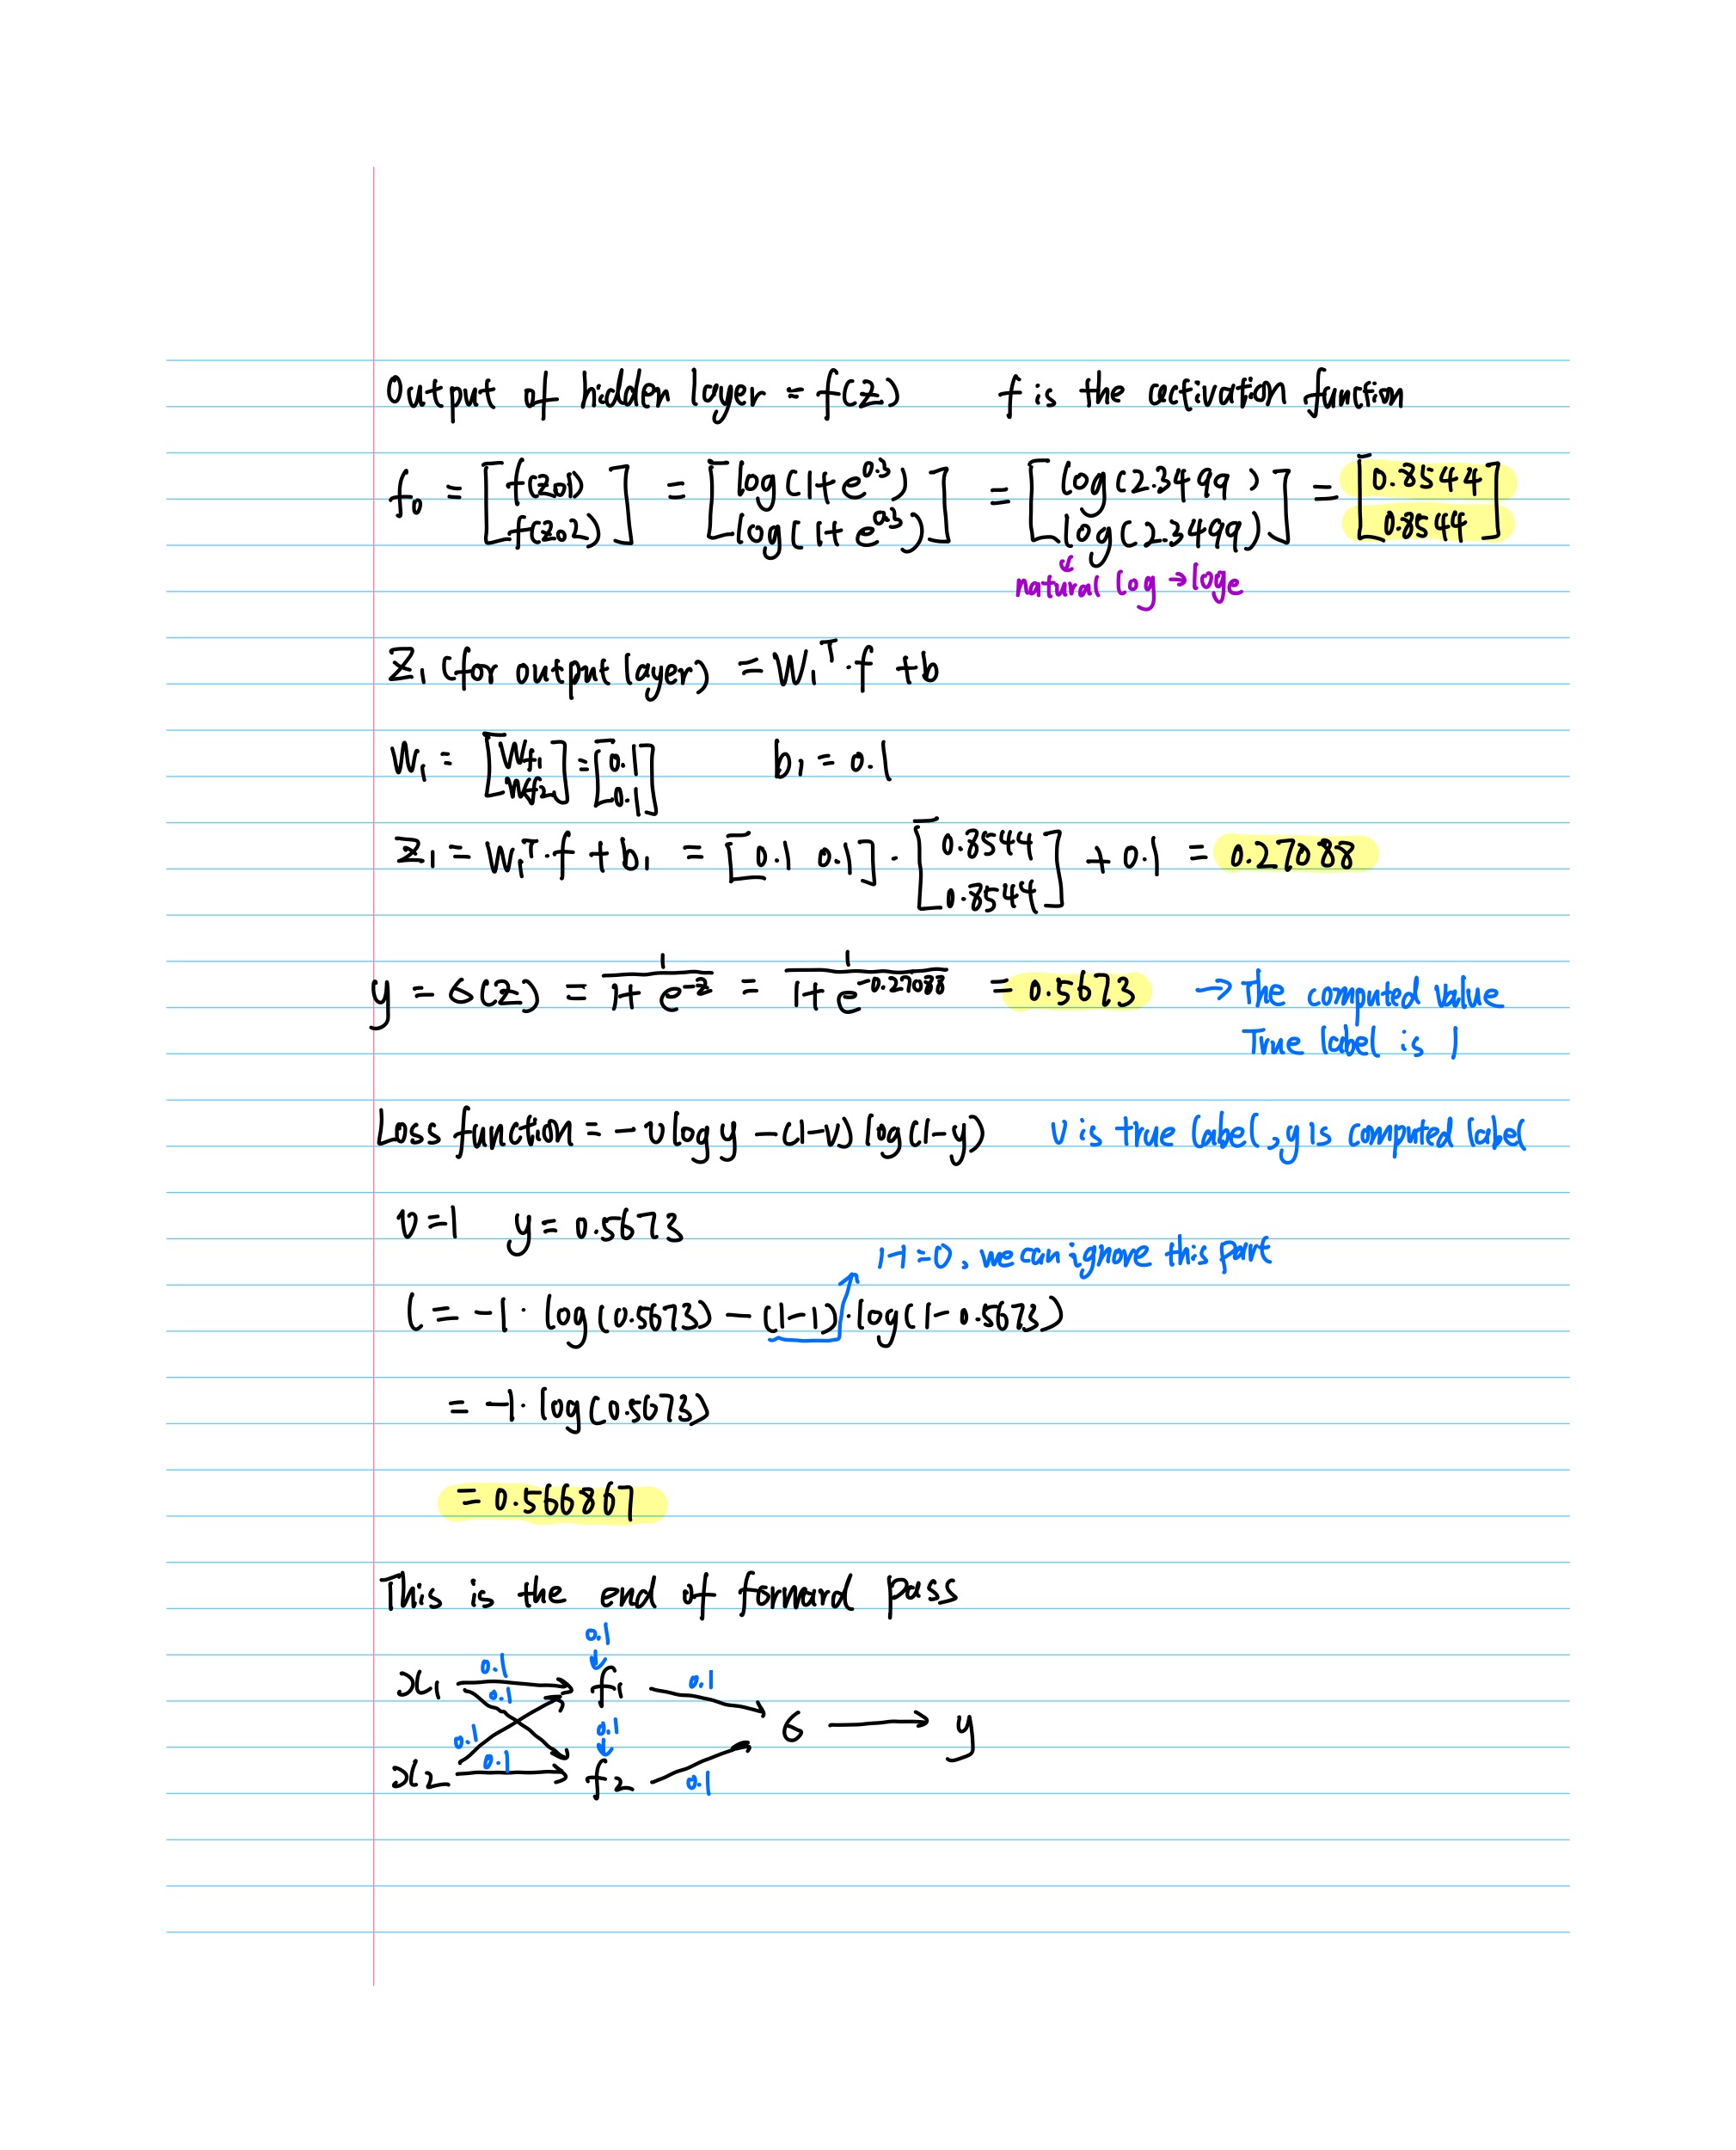 Output of hidden layer = f(z) f is the activation function
f₀ = [f(z01) f(z02)] = [log(1+e^0.3) log(1+e^0.3)] = [log(2.3499) log(2.3499)] = [0.8544 0.8544]
natural log → loge
Z₁ (for output layer) = W₁ᵀ·f + b
W₁ = [Wf₁ Wf₂] = [0.1 0.1] b₁ = 0.1
Z₁ = W₁ᵀ·f + b₁ = [0.1 0.1]·[0.8544 0.8544] + 0.1 = 0.27088
y = σ(z) = 1/(1+e^-z) = 1/(1+e^-0.27088) = 0.5673 → The computed value
True label is 1
Loss function = -v log y - (1-v) log(1-y) v is true label, y is computed label
v=1 y=0.5673
1-1=0, we can ignore this part
l = -1·log(0.5673) - (1-1)·log(1-0.5673)
= -1·log(0.5673)
= 0.566867
This is the end of forward pass
0.1
x₁ 0.1 0.1 f₁ 0.1
0.1 0.1 σ → y
x₂ 0.1 f₂ 0.1